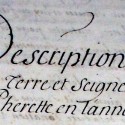 Description
Terre et Seigne
Pherette en l'anne